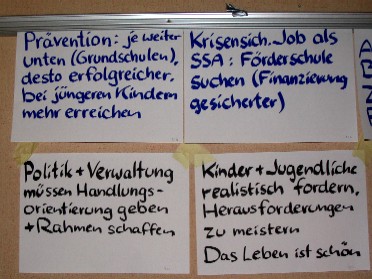 Prävention: je weiter
unten (Grundschulen),
desto erfolgreicher,
bei jüngeren Kindern
mehr erreichen
Krisensich. Job als
SSA: Förderschule
suchen (Finanzierung
gesicherter)
Politik + Verwaltung
müssen Handlungs-
orientierung geben
+ Rahmen schaffen
Kinder + Jugendliche
realistisch fordern,
Herausforderungen
zu meistern
Das Leben ist schön